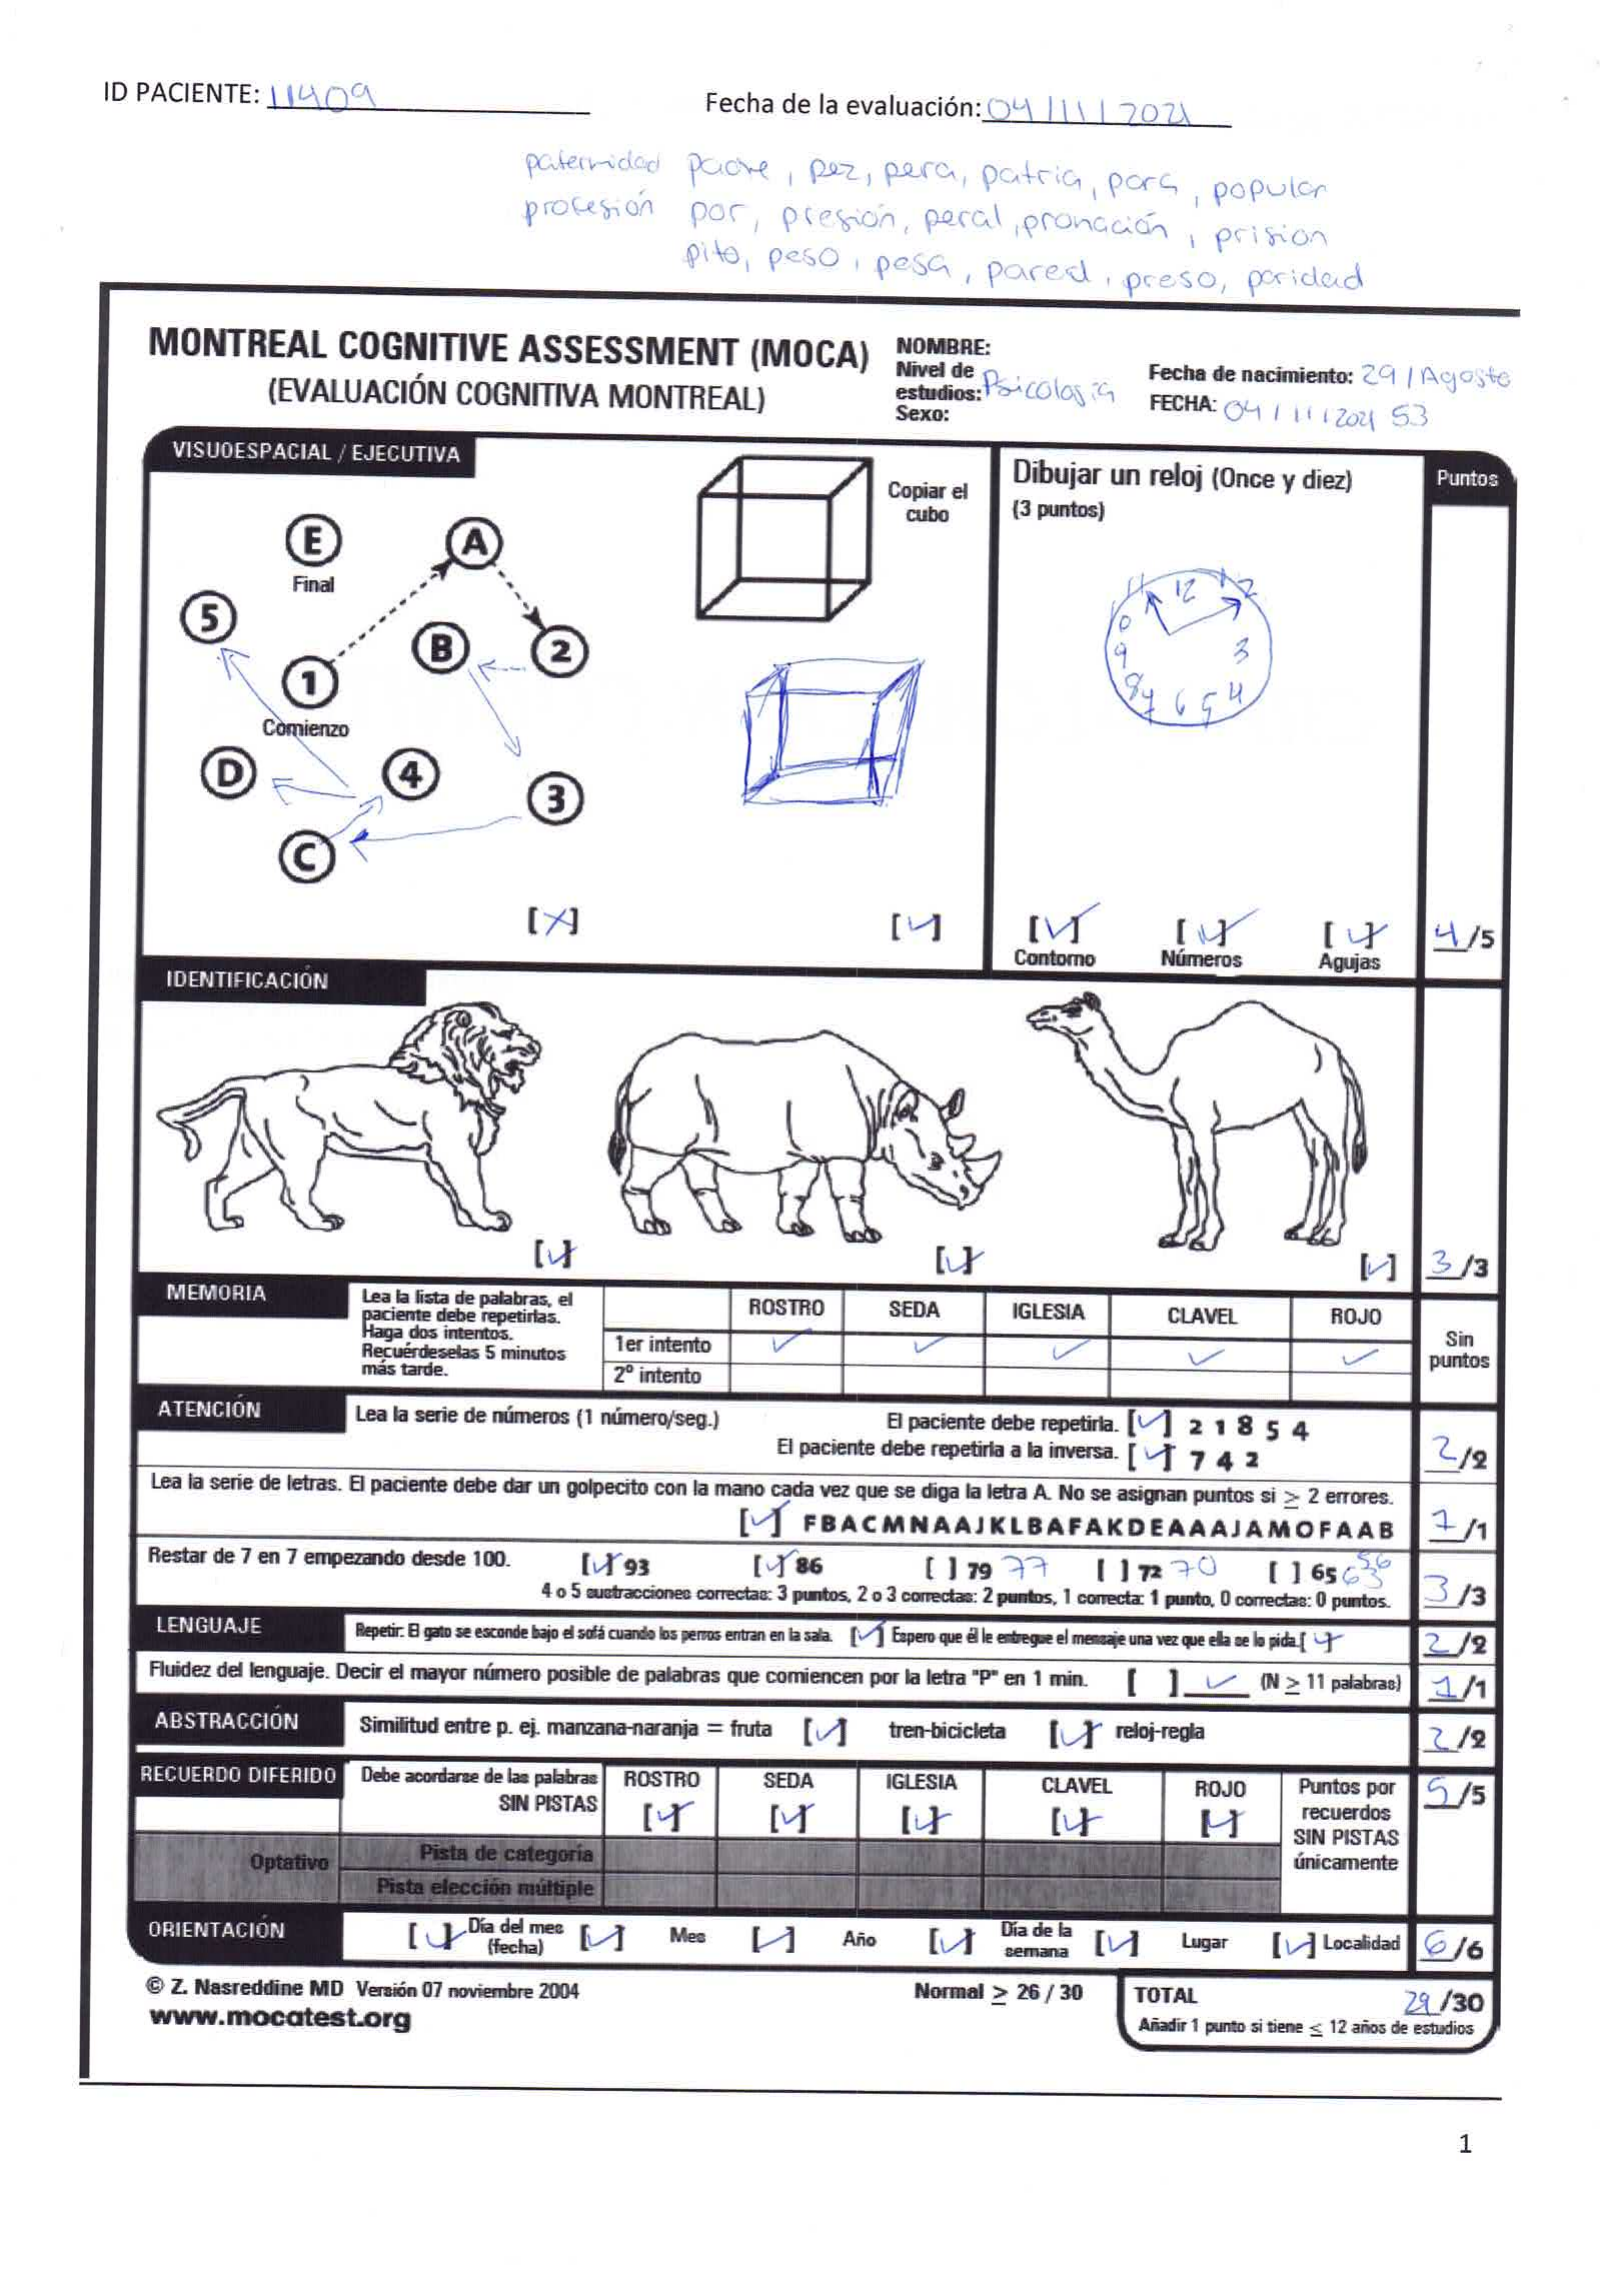 ID PACIENTE: 11409
Fecha de la evaluación: 04/11/2021
paternidad padre, pez, pera, patria, para, popular
profesión por, presión, peral, pronación, prision
pito, peso, pesa, pared, preso, paridad
MONTREAL COGNITIVE ASSESSMENT (MOCA)
(EVALUACIÓN COGNITIVA MONTREAL)
NOMBRE:
Nivel de estudios: Psicologia
Sexo:
Fecha de nacimiento: 29/Agosto
FECHA: 04/11/2021 53
VISUOESPACIAL / EJECUTIVA
Puntos
E
Final
A
5
B
2
1
Comienzo
D
4
3
C
[X]
Copiar el
cubo
[✓]
Dibujar un reloj (Once y diez)
(3 puntos)
11 12 1 2
10
9 3
8 7 6 5 4
[✓] [✓] [✓]
Contorno Números Agujas
4/5
IDENTIFICACIÓN
[✓] [✓] [✓] 3/3
MEMORIA
Lea la lista de palabras, el
paciente debe repetirlas.
Haga dos intentos.
Recuérdeselas 5 minutos
más tarde.
ROSTRO SEDA IGLESIA CLAVEL ROJO
1er intento ✓ ✓ ✓ ✓ ✓
2º intento
Sin
puntos
ATENCIÓN
Lea la serie de números (1 número/seg.) El paciente debe repetirla. [✓] 2 1 8 5 4
El paciente debe repetirla a la inversa. [✓] 7 4 2 2/2
Lea la serie de letras. El paciente debe dar un golpecito con la mano cada vez que se diga la letra A. No se asignan puntos si ≥ 2 errores.
[✓] FBACMNAAJKLBAFAKDEAAAJAMOFAAB 1/1
Restar de 7 en 7 empezando desde 100. [✓] 93 [✓] 86 [ ] 79 77 [ ] 72 70 [ ] 65 63 56
4 o 5 sustracciones correctas: 3 puntos, 2 o 3 correctas: 2 puntos, 1 correcta: 1 punto, 0 correctas: 0 puntos. 3/3
LENGUAJE
Repetir: El gato se esconde bajo el sofá cuando los perros entran en la sala. [✓] Espero que él le entregue el mensaje una vez que ella se lo pida.[✓] 2/2
Fluidez del lenguaje. Decir el mayor número posible de palabras que comiencen por la letra "P" en 1 min. [ ] ✓ (N ≥ 11 palabras) 1/1
ABSTRACCIÓN
Similitud entre p. ej. manzana-naranja = fruta [✓] tren-bicicleta [✓] reloj-regla 2/2
RECUERDO DIFERIDO
Debe acordarse de las palabras
SIN PISTAS
ROSTRO SEDA IGLESIA CLAVEL ROJO
[✓] [✓] [✓] [✓] [✓]
Puntos por
recuerdos
SIN PISTAS
únicamente
5/5
Optativo
Pista de categoría
Pista elección múltiple
ORIENTACIÓN
[✓] Día del mes (fecha) [✓] Mes [✓] Año [✓] Día de la semana [✓] Lugar [✓] Localidad 6/6
© Z. Nasreddine MD Versión 07 noviembre 2004
www.mocatest.org
Normal ≥ 26 / 30
TOTAL 29/30
Añadir 1 punto si tiene ≤ 12 años de estudios
1